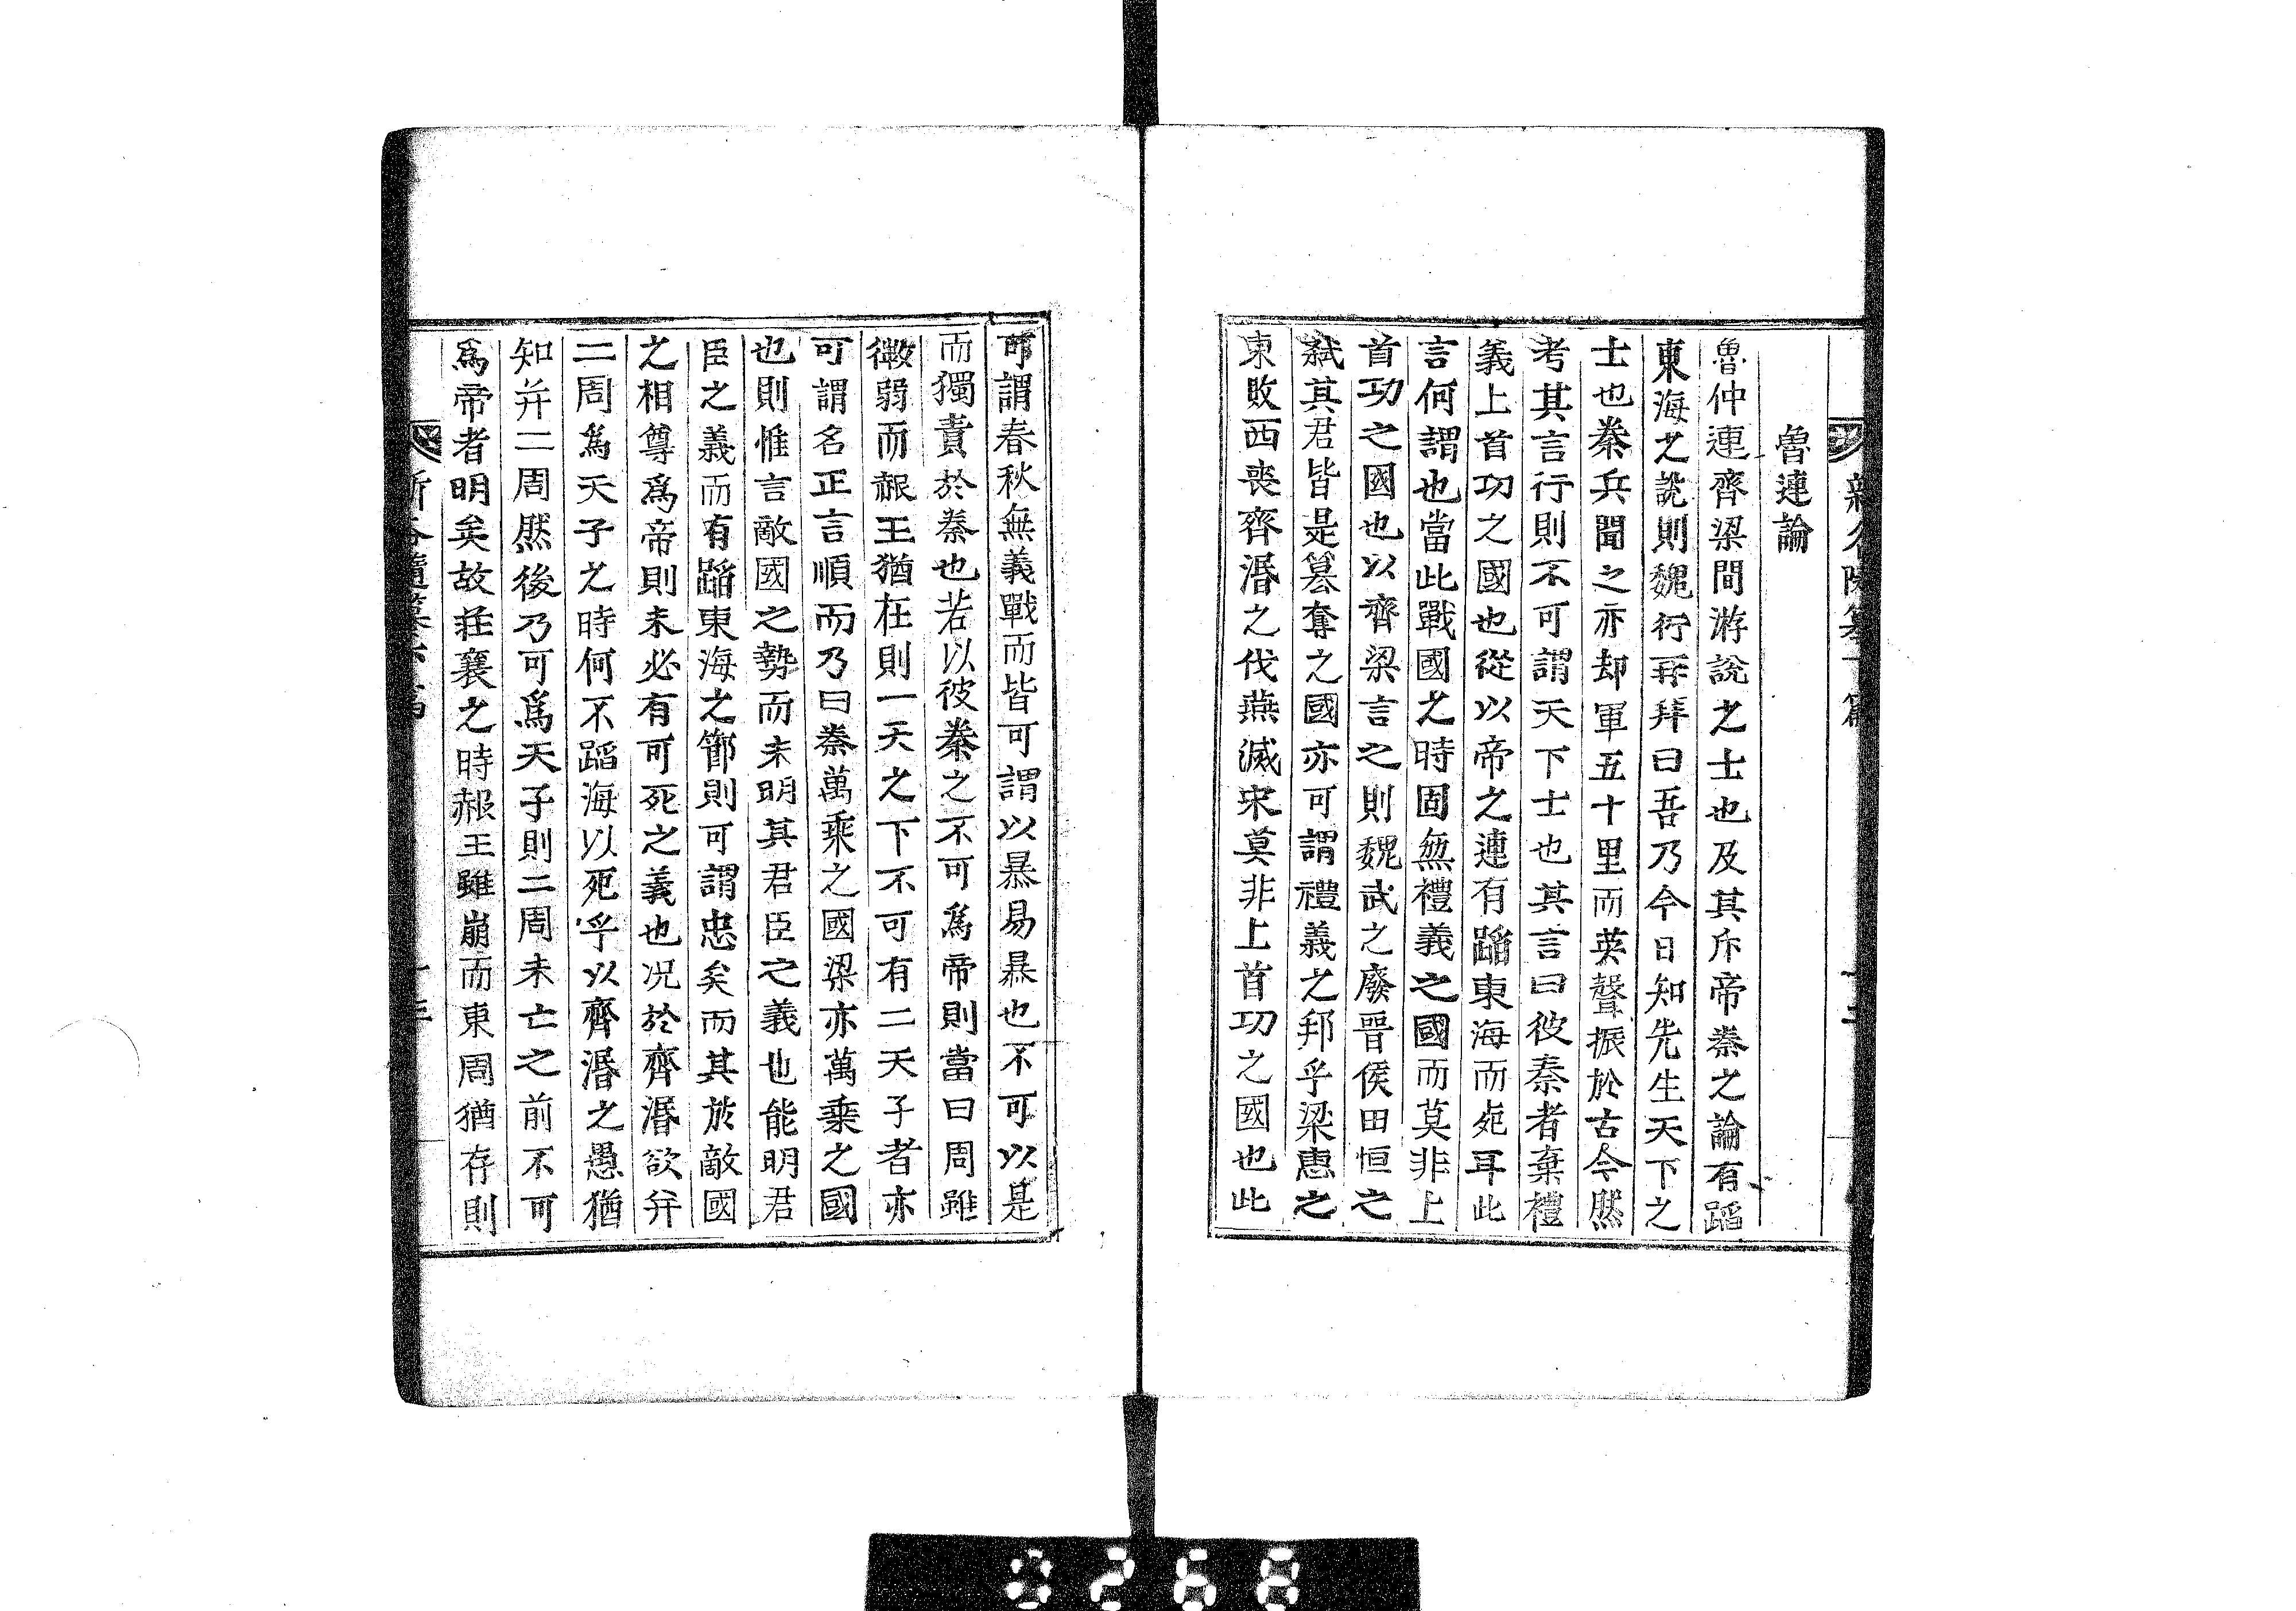 魯連論
魯仲連齊梁間游說之士也及其斥帝秦之論有蹈
東海之說則魏衍再拜曰吾乃今日知先生天下之
士也秦兵聞之亦却軍五十里而英聲振於古今然
考其言行則不可謂天下士也其言曰彼秦者棄禮
義上首功之國也從以帝之連有蹈東海而死耳此
言何謂也當此戰國之時固無禮義之國而莫非上
首功之國也以齊梁言之則魏武之廢晉侯田恒之
弑其君皆是簒奪之國亦可謂禮義之邦乎梁惠之
東敗西喪齊湣之伐燕滅宋莫非上首功之國也此
可謂春秋無義戰而皆可謂以暴易暴也不可以是
而獨責於秦也若以彼秦之不可爲帝則當曰周雖
微弱而赧王猶在則一天之下不可有二天子者亦
可謂名正言順而乃曰秦萬乘之國梁亦萬乘之國
也則惟言敵國之勢而未明其君臣之義也能明君
臣之義而有蹈東海之節則可謂忠矣而其於敵國
之相尊爲帝則未必有可死之義也况於齊湣欲并
二周爲天子之時何不蹈海以死乎以齊湣之愚猶
知并二周然後乃可爲天子則二周未亡之前不可
爲帝者明矣故莊襄之時赧王雖崩而東周猶存則
0268